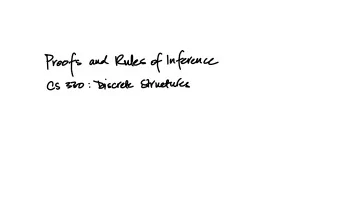 Proofs and Rules of Inference
CS 320: Discrete Structures